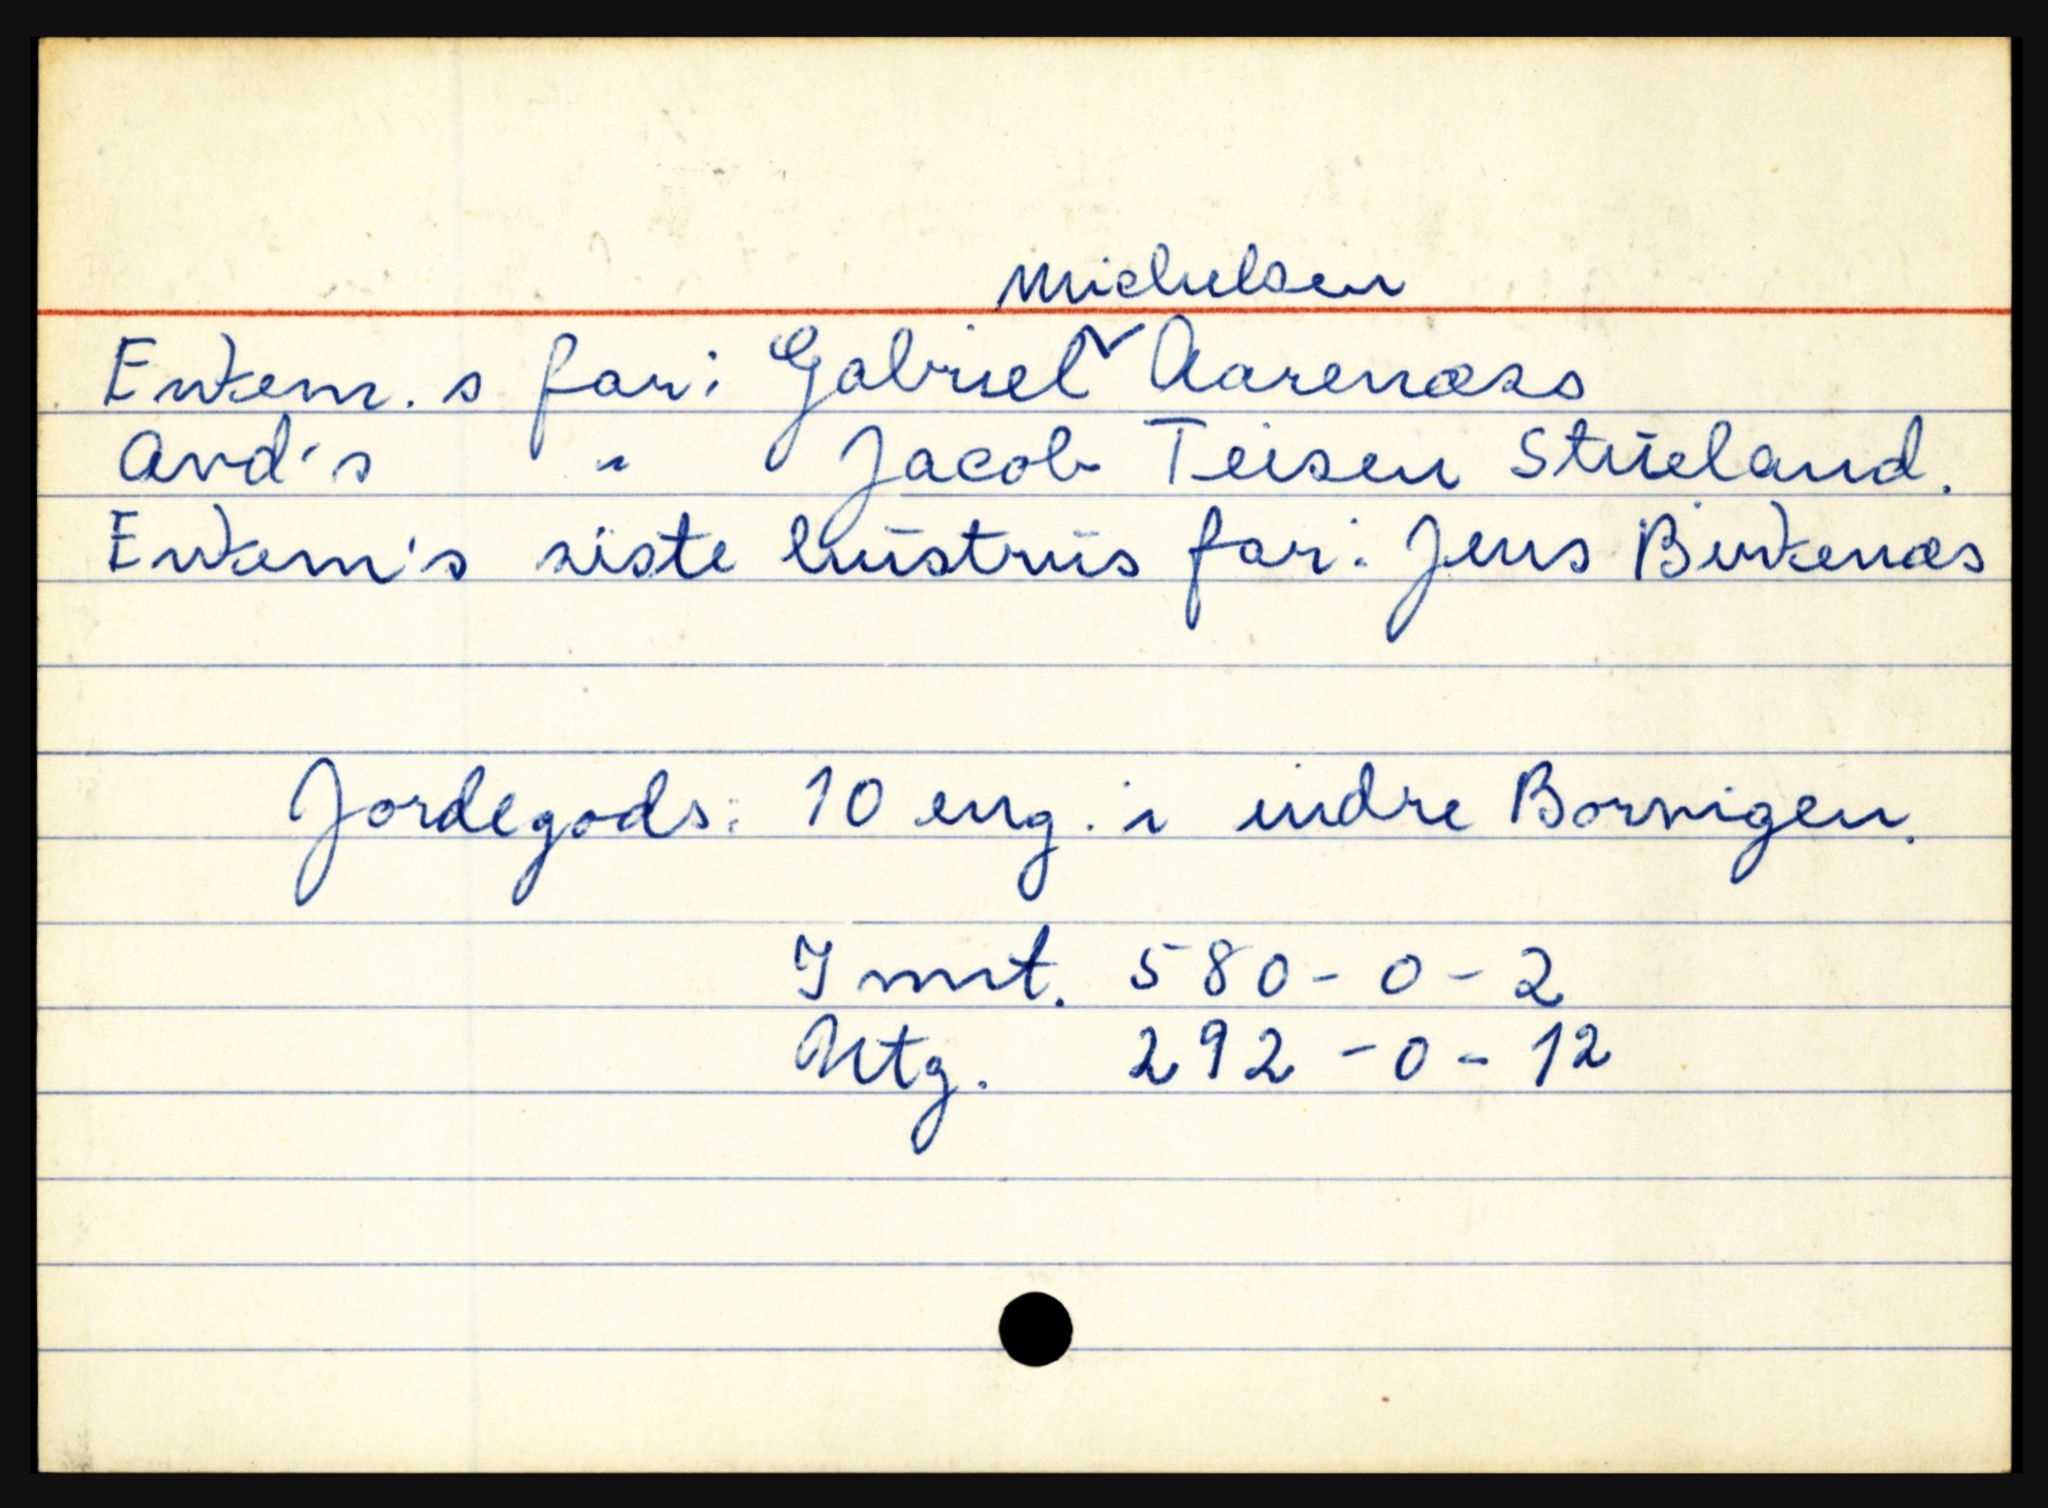 Michelsen
Enkem.s far: Gabriel ˅ Aarenæss
Avd's " Jacob Teisen Stueland.
Enkem's siste hustrus far: Jens Birkenæs
Jordegods: 10 eng. i indre Borvigen.
Innt. 580-0-2
Utg. 292-0-12